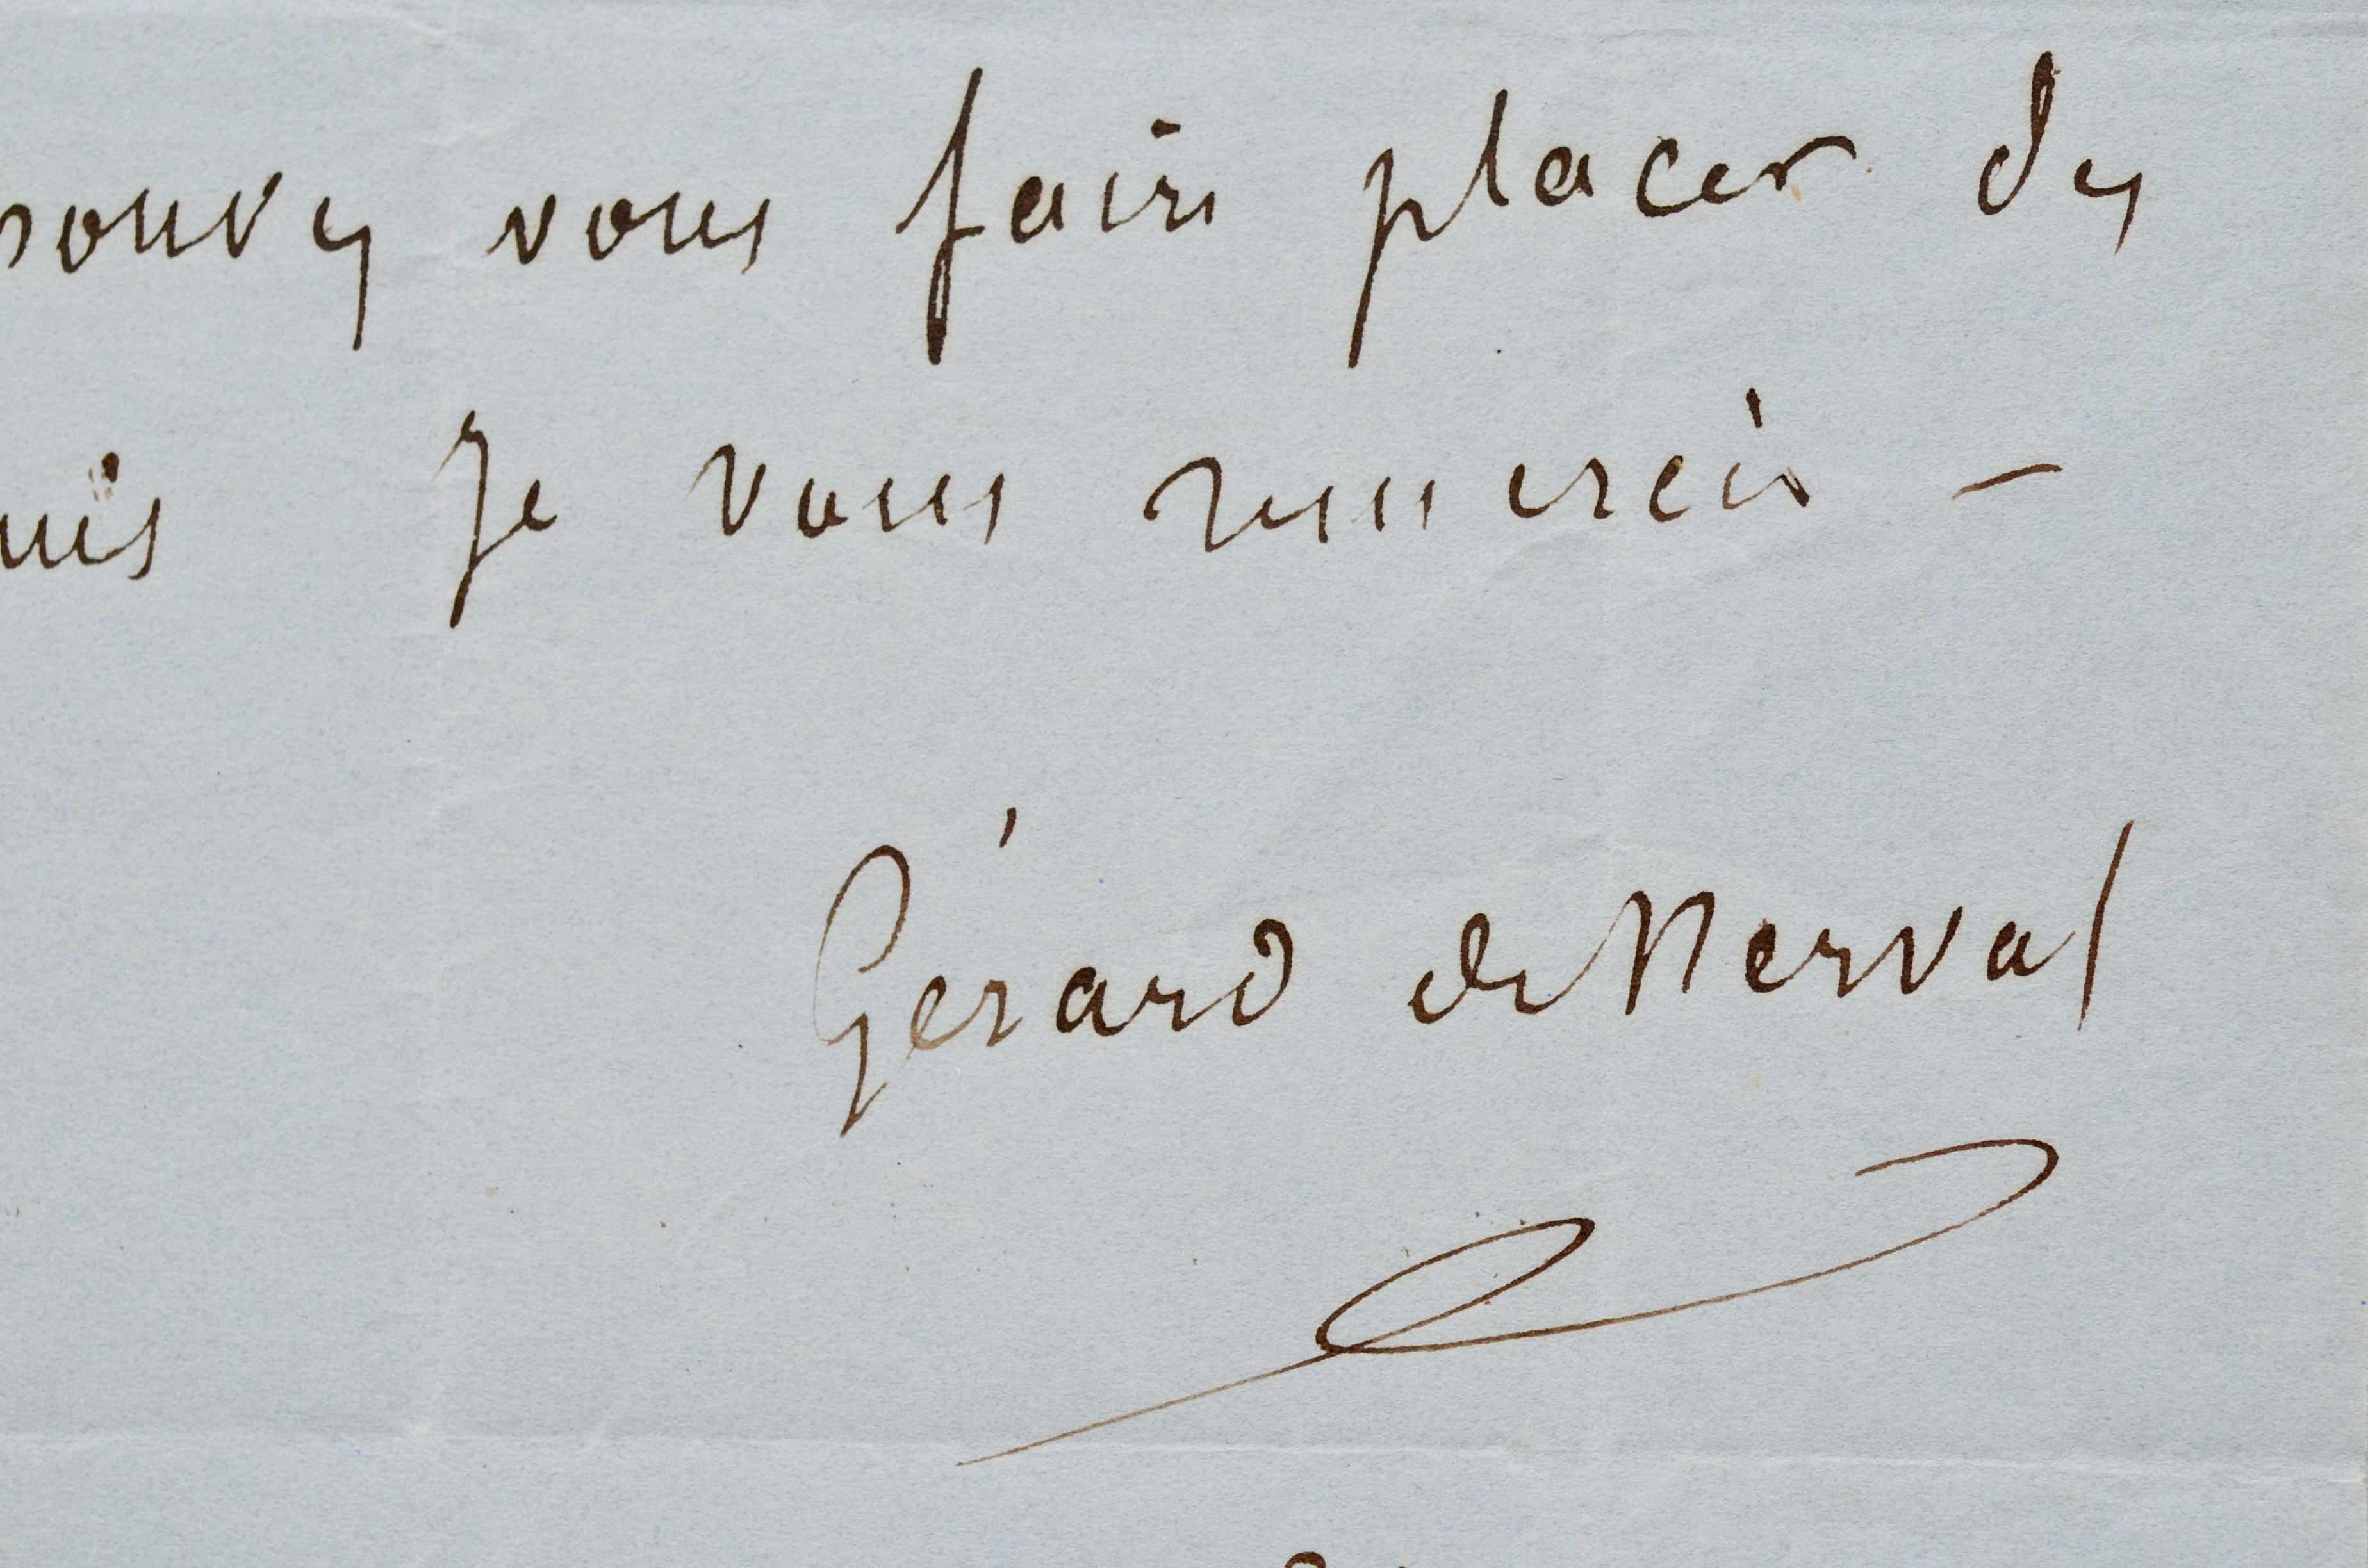 pouvez vous faire placer des
uis je vous remercie –
Gérard de Nerval